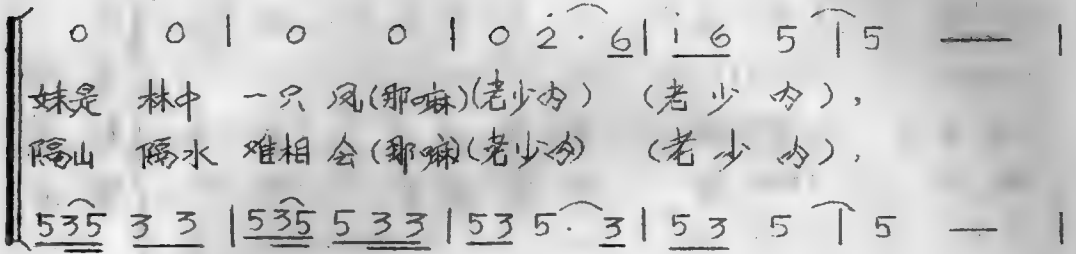 0 0 | 0 0 | 0 2̇· 6 | i̇ 6 5 | 5 — |
妹是 林中 一只 凤(那嘛)(老少内) (老少内),
隔山 隔水 难相会(那嘛)(老少内) (老少内),
535 3 3 | 535 5 33 | 53 5· 3 | 53 5 | 5 — |